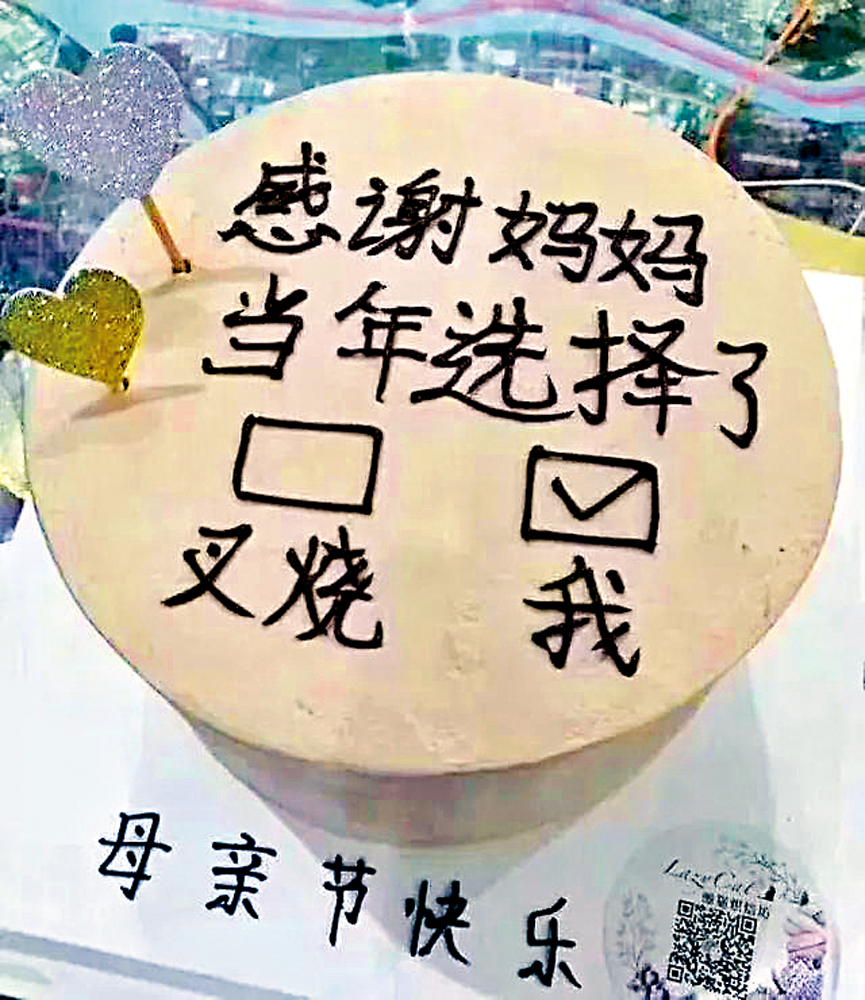 感谢妈妈
当年选择了
☐ ☑
叉烧 我
母亲节快乐